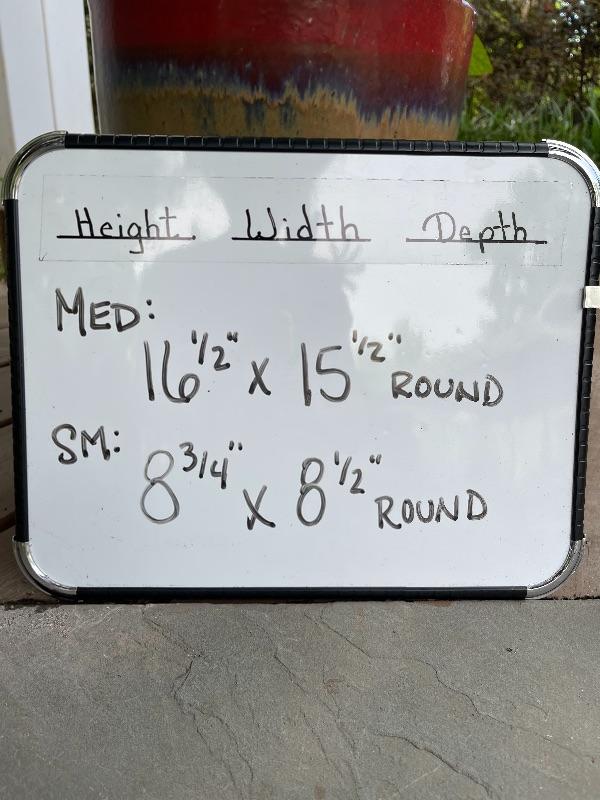 Height Width Depth
MED:
16 1/2" x 15 1/2" ROUND
SM:
8 3/4" x 8 1/2" ROUND